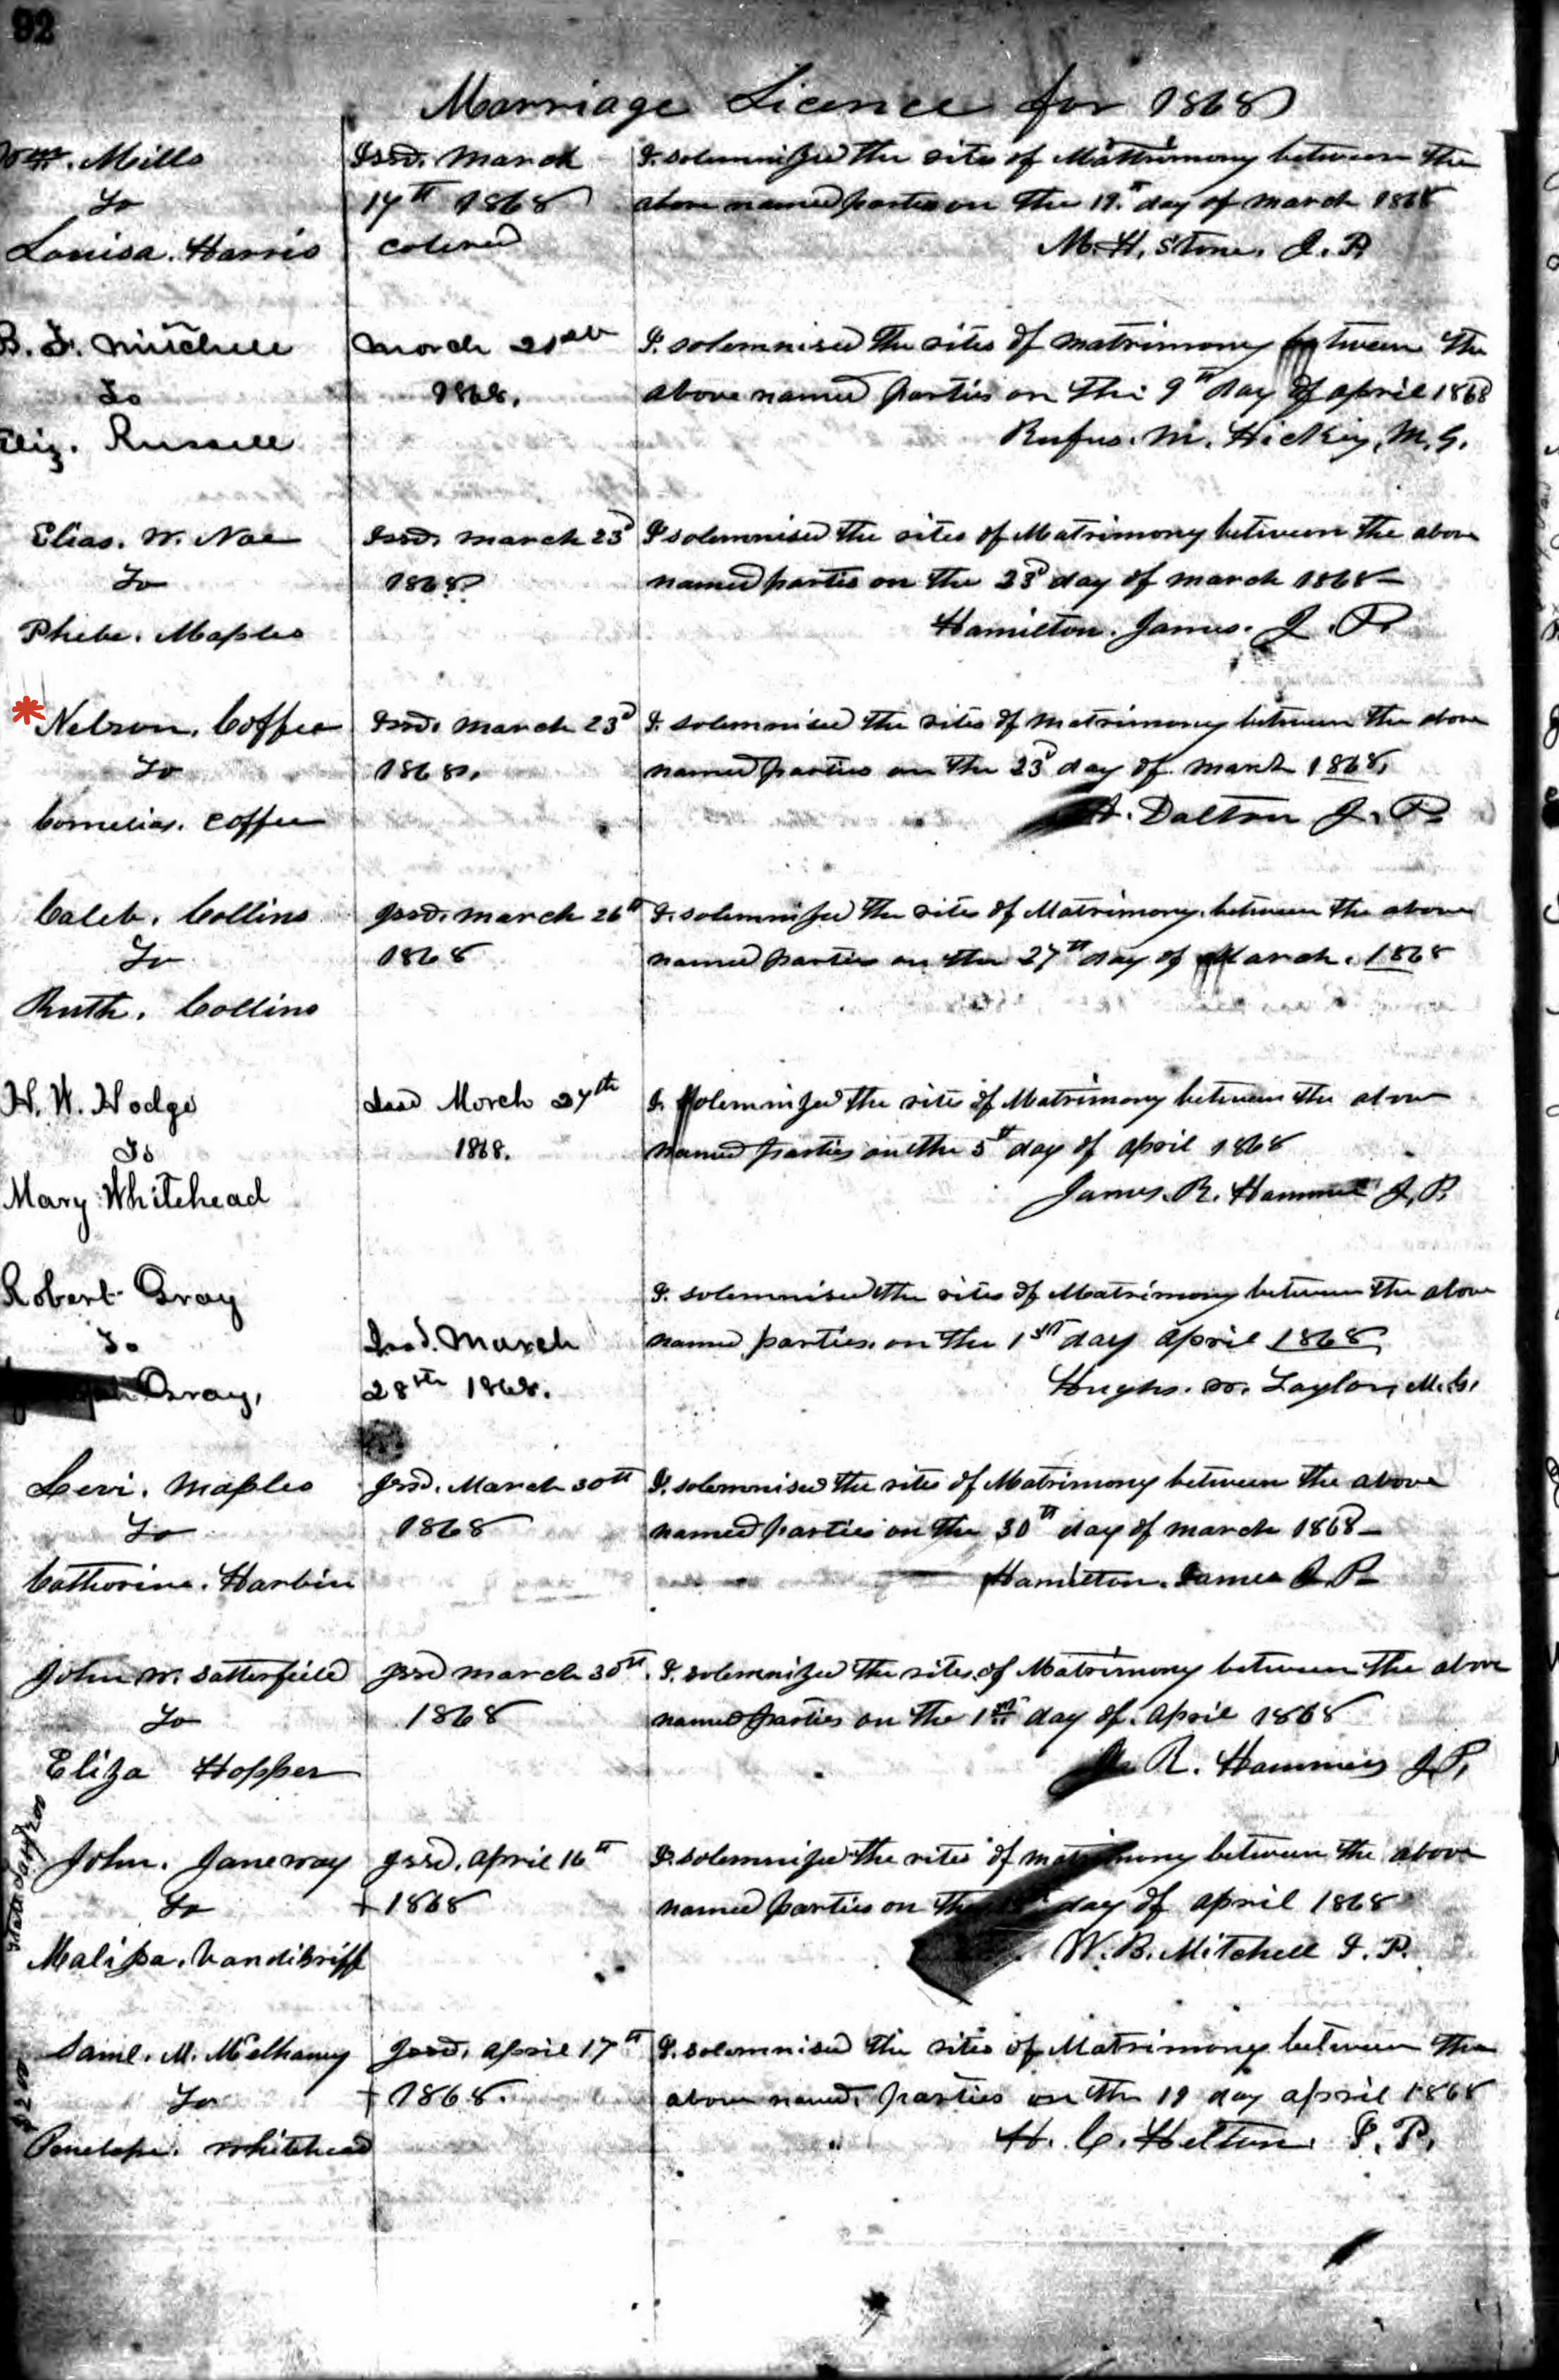 92
Marriage Licence for 1868
Wm. Mills
To
Louisa. Harris
Issd. March
17th 1868
colored
I. solemnized the rites of Mattrimony between the
above named parties on the 19th day of march 1868
M. H. Stone. J. P.
B. F. Mitchell
To
Eliz. Russell
March 21st
1868.
I. solemnised the rites of matrimony between the
above named parties on the 9th day of april 1868
Rufus. M. Hickey, M. G.
Elias. W. Noe
To
Phebe. Maples
Issd. march 23d
1868
I solemnised the rites of Matrimony between the above
named parties on the 23d day of march 1868
Hamilton. James. J. P.
Nelson. Coffee
To
Cornelias. Coffee
Issd. march 23d
1868.
I. solemnised the rites of matrimony between the above
named parties on the 23d day of march 1868,
A. Dalton J. P.
Caleb. Collins
To
Ruth. Collins
Issd. march 26th
1868
I. solemnized the rites of Matrimony. between the above
named parties on the 27th day of March. 1868
H. W. Hodge
To
Mary Whitehead
Issd March 27th
1868.
I. solemnized the rites of Matrimony between the above
named parties on the 5th day of april 1868
James. R. Hammel J. P.
Robert Gray
To
Gray,
Issd. March
28th 1868.
I. solemnised the rites of Matrimony between the above
named parties. on the 1st day april 1868
Hughs. W. Taylor, M. G.
Levi. Maples
To
Catherine. Harbin
Issd. March 30th
1868
I. solemnised the rites of Matrimony between the above
named parties on the 30th day of march 1868
Hamilton. James J. P.
John W. Satterfield
To
Eliza Hopper
Issd march 30th.
1868
I. solemnized the rites of Matrimony between the above
named parties on the 1st day of. april 1868
R. J. P.
John. Janeway
To
Malissa. Vandibriff
Issd. april 16th
+ 1868
I. solemnized the rites of matrimony between the above
named parties on the day of april 1868
W. B. Mitchell J. P.
Saml. M. McElhaney
To
Penelope. Whitehead
Issd. april 17th
+ 1868.
I. solemnised the rites of Matrimony between the
above named. parties on the 19 day april 1868
H. C. Helton. J. P.